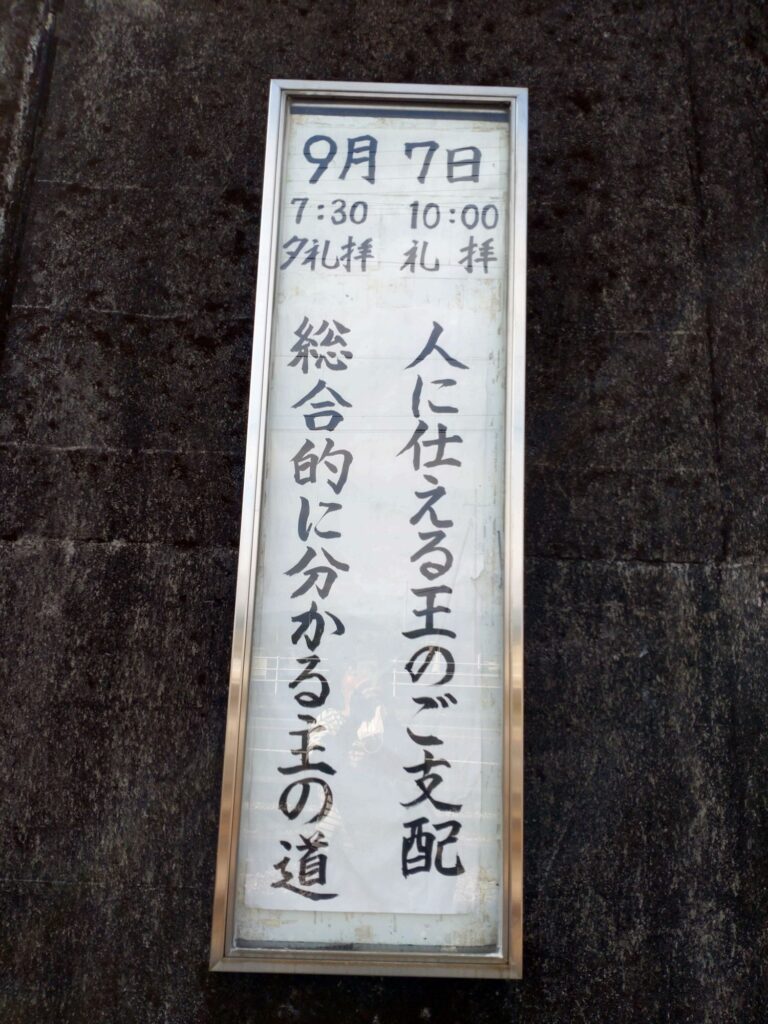 9月 7日
10:00
礼拝
人に仕える王のご支配
7:30
夕礼拝
総合的に分かる主の道